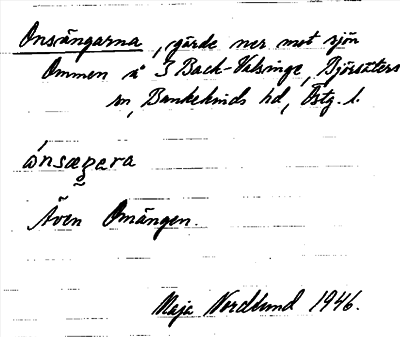 Onsängarna, gärde ner mot sjön
Ommen å S Back-Valsinge, Björsäters
sn, Bankekinds hd, Östg. l.
ónsæŋera
Även Omängen.
Maja Nordlund 1946.